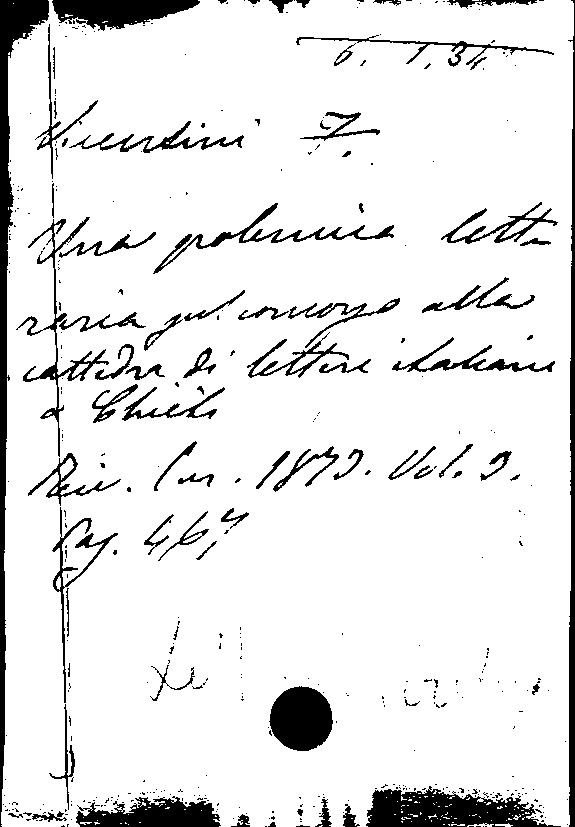 6. 1. 34
Vicentini F.
Una polemica lette
raria pel concorso alla
cattedra di lettere italiane
a Chieti
Riv. Eur. 1873. Vol. 3.
Pag. 467